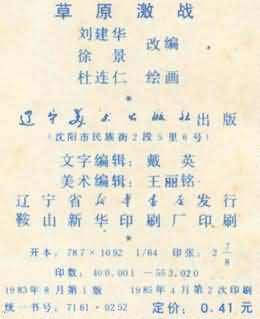 草原激战
刘建华
徐景 改编
杜连仁 绘画
辽宁美术出版社出版
(沈阳市民族街2段5里6号)
文字编辑:戴英
美术编辑:王丽铭
辽宁省新华书店发行
鞍山新华印刷厂印刷
开本:787×1092 1/64 印张:2 7/8
印数:400,001—553,020
1983年8月第1版 1985年4月第2次印刷
统一书号:7161·0252 定价:0.41元